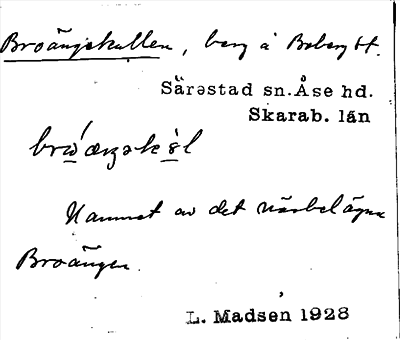 Broängskullen, berg å Boberg tt.
Särestad sn. Åse hd.
Skarab. län
Namnet av det närbelägna
Broängen.
L. Madsen 1928